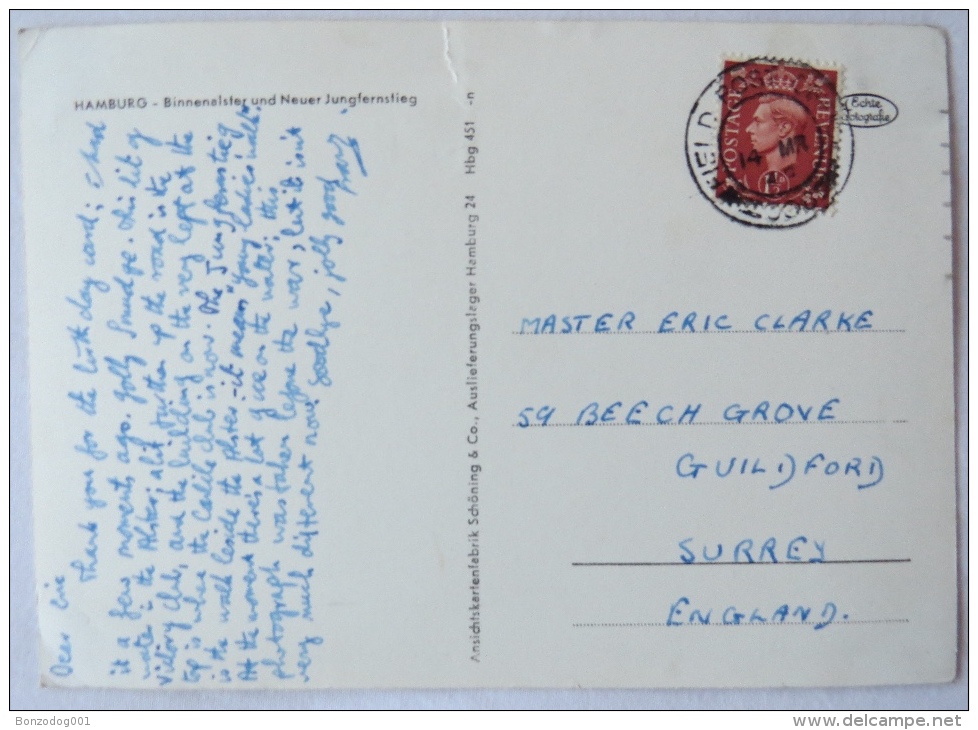 HAMBURG - Binnenalster und Neuer Jungfernstieg
Dear Eric
Thank you for the birthday card; I had
it a few moments ago. Jolly Smudge. This bit of
water is the Alster; a bit further up the road is the
Victory Club, and the building on the very left at the
top is where the Carlile club is now. The Jungfernstieg
is the walk beside the Alster - it means "young ladies walk".
At the moment there's a lot of ice on the water; this
photograph was taken before the war, but it isn't
very much different now. Goodbye, jolly good
Ansichtskartenfabrik Schöning & Co., Auslieferungslager Hamburg 24 Hbg 451 -n
FIELD POST
14 MR
POSTAGE REVENUE
Echte
Fotografie
MASTER ERIC CLARKE
59 BEECH GROVE
GUILDFORD
SURREY
ENGLAND.
Bonzodog001
delcampe.net